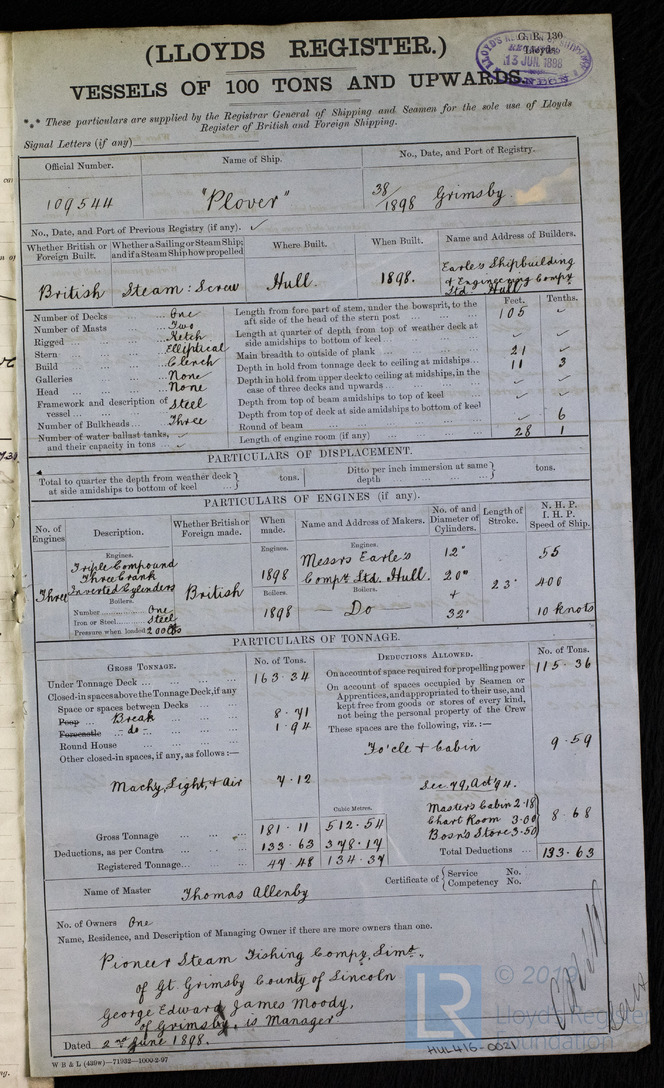 G. R. 130
Lloyds.
LLOYD'S REGISTER
13 JUN. 1898
(LLOYDS REGISTER.)
VESSELS OF 100 TONS AND UPWARDS.
*** These particulars are supplied by the Registrar General of Shipping and Seamen for the sole use of Lloyds
Register of British and Foreign Shipping.
Signal Letters (if any)
Official Number. Name of Ship. No., Date, and Port of Registry.
109544 "Plover" 38/1898 Grimsby.
No., Date, and Port of Previous Registry (if any). ✓
Whether British or Foreign Built. Whether a Sailing or Steam Ship; and if a Steam Ship how propelled Where Built. When Built. Name and Address of Builders.
British Steam: Screw Hull. 1898. Earle's Shipbuilding & Engineering Compy Ltd. Hull
Feet. Tenths.
Number of Decks One
Number of Masts Two
Rigged Ketch
Stern Elliptical
Build Clench
Galleries None
Head None
Framework and description of vessel Steel
Number of Bulkheads Three
Number of water ballast tanks, and their capacity in tons ✓
Length from fore part of stem, under the bowsprit, to the aft side of the head of the stern post 105 ✓
Length at quarter of depth from top of weather deck at side amidships to bottom of keel ✓ ✓
Main breadth to outside of plank 21 ✓
Depth in hold from tonnage deck to ceiling at midships 11 3
Depth in hold from upper deck to ceiling at midships, in the case of three decks and upwards ✓ ✓
Depth from top of beam amidships to top of keel ✓ ✓
Depth from top of deck at side amidships to bottom of keel ✓ ✓
Round of beam ✓ 6
Length of engine room (if any) 28 1
PARTICULARS OF DISPLACEMENT.
Total to quarter the depth from weather deck at side amidships to bottom of keel } tons. Ditto per inch immersion at same depth } tons.
PARTICULARS OF ENGINES (if any).
No. of Engines Description. Whether British or Foreign made. When made. Name and Address of Makers. No. of and Diameter of Cylinders. Length of Stroke. N. H. P. I. H. P. Speed of Ship.
Engines. Engines. Engines.
Three Triple Compound Three Crank Inverted Cylinders British 1898 Messrs Earle's Compy Ltd. Hull. 12" 20" + 32" 23" 55 400 10 knots
Boilers. Boilers. Boilers.
Number One 1898 Do
Iron or Steel Steel
Pressure when loaded 200 lbs
PARTICULARS OF TONNAGE.
GROSS TONNAGE. No. of Tons.
Under Tonnage Deck 163.34
Closed-in spaces above the Tonnage Deck, if any
Space or spaces between Decks
Poop Break 8.71
Forecastle - do - 1.94
Round House
Other closed-in spaces, if any, as follows:—
Machy, Light, & Air 7.12
Cubic Metres.
Gross Tonnage 181.11 512.54
Deductions, as per Contra 133.63 378.17
Registered Tonnage 47.48 134.37
DEDUCTIONS ALLOWED. No. of Tons.
On account of space required for propelling power 115.36
On account of spaces occupied by Seamen or Apprentices, and appropriated to their use, and kept free from goods or stores of every kind, not being the personal property of the Crew
These spaces are the following, viz.:—
Fo'cle & Cabin 9.59
Sec. 79, Act '94.
Master's Cabin 2.18
Chart Room 3.00
Bosn's Store 3.50 } 8.68
Total Deductions 133.63
Name of Master Thomas Allenby Certificate of { Service No.
Competency No.
No. of Owners One
Name, Residence, and Description of Managing Owner if there are more owners than one.
Pioneer Steam Fishing Compy, Limt.,
of Gt. Grimsby County of Lincoln
George Edward James Moody,
of Grimsby, is Manager
Dated 2nd June 1898.
W B & L (439w)—71932—1000-2-97
HUL416-0021
LR © 2019
Lloyd's Register
Foundation